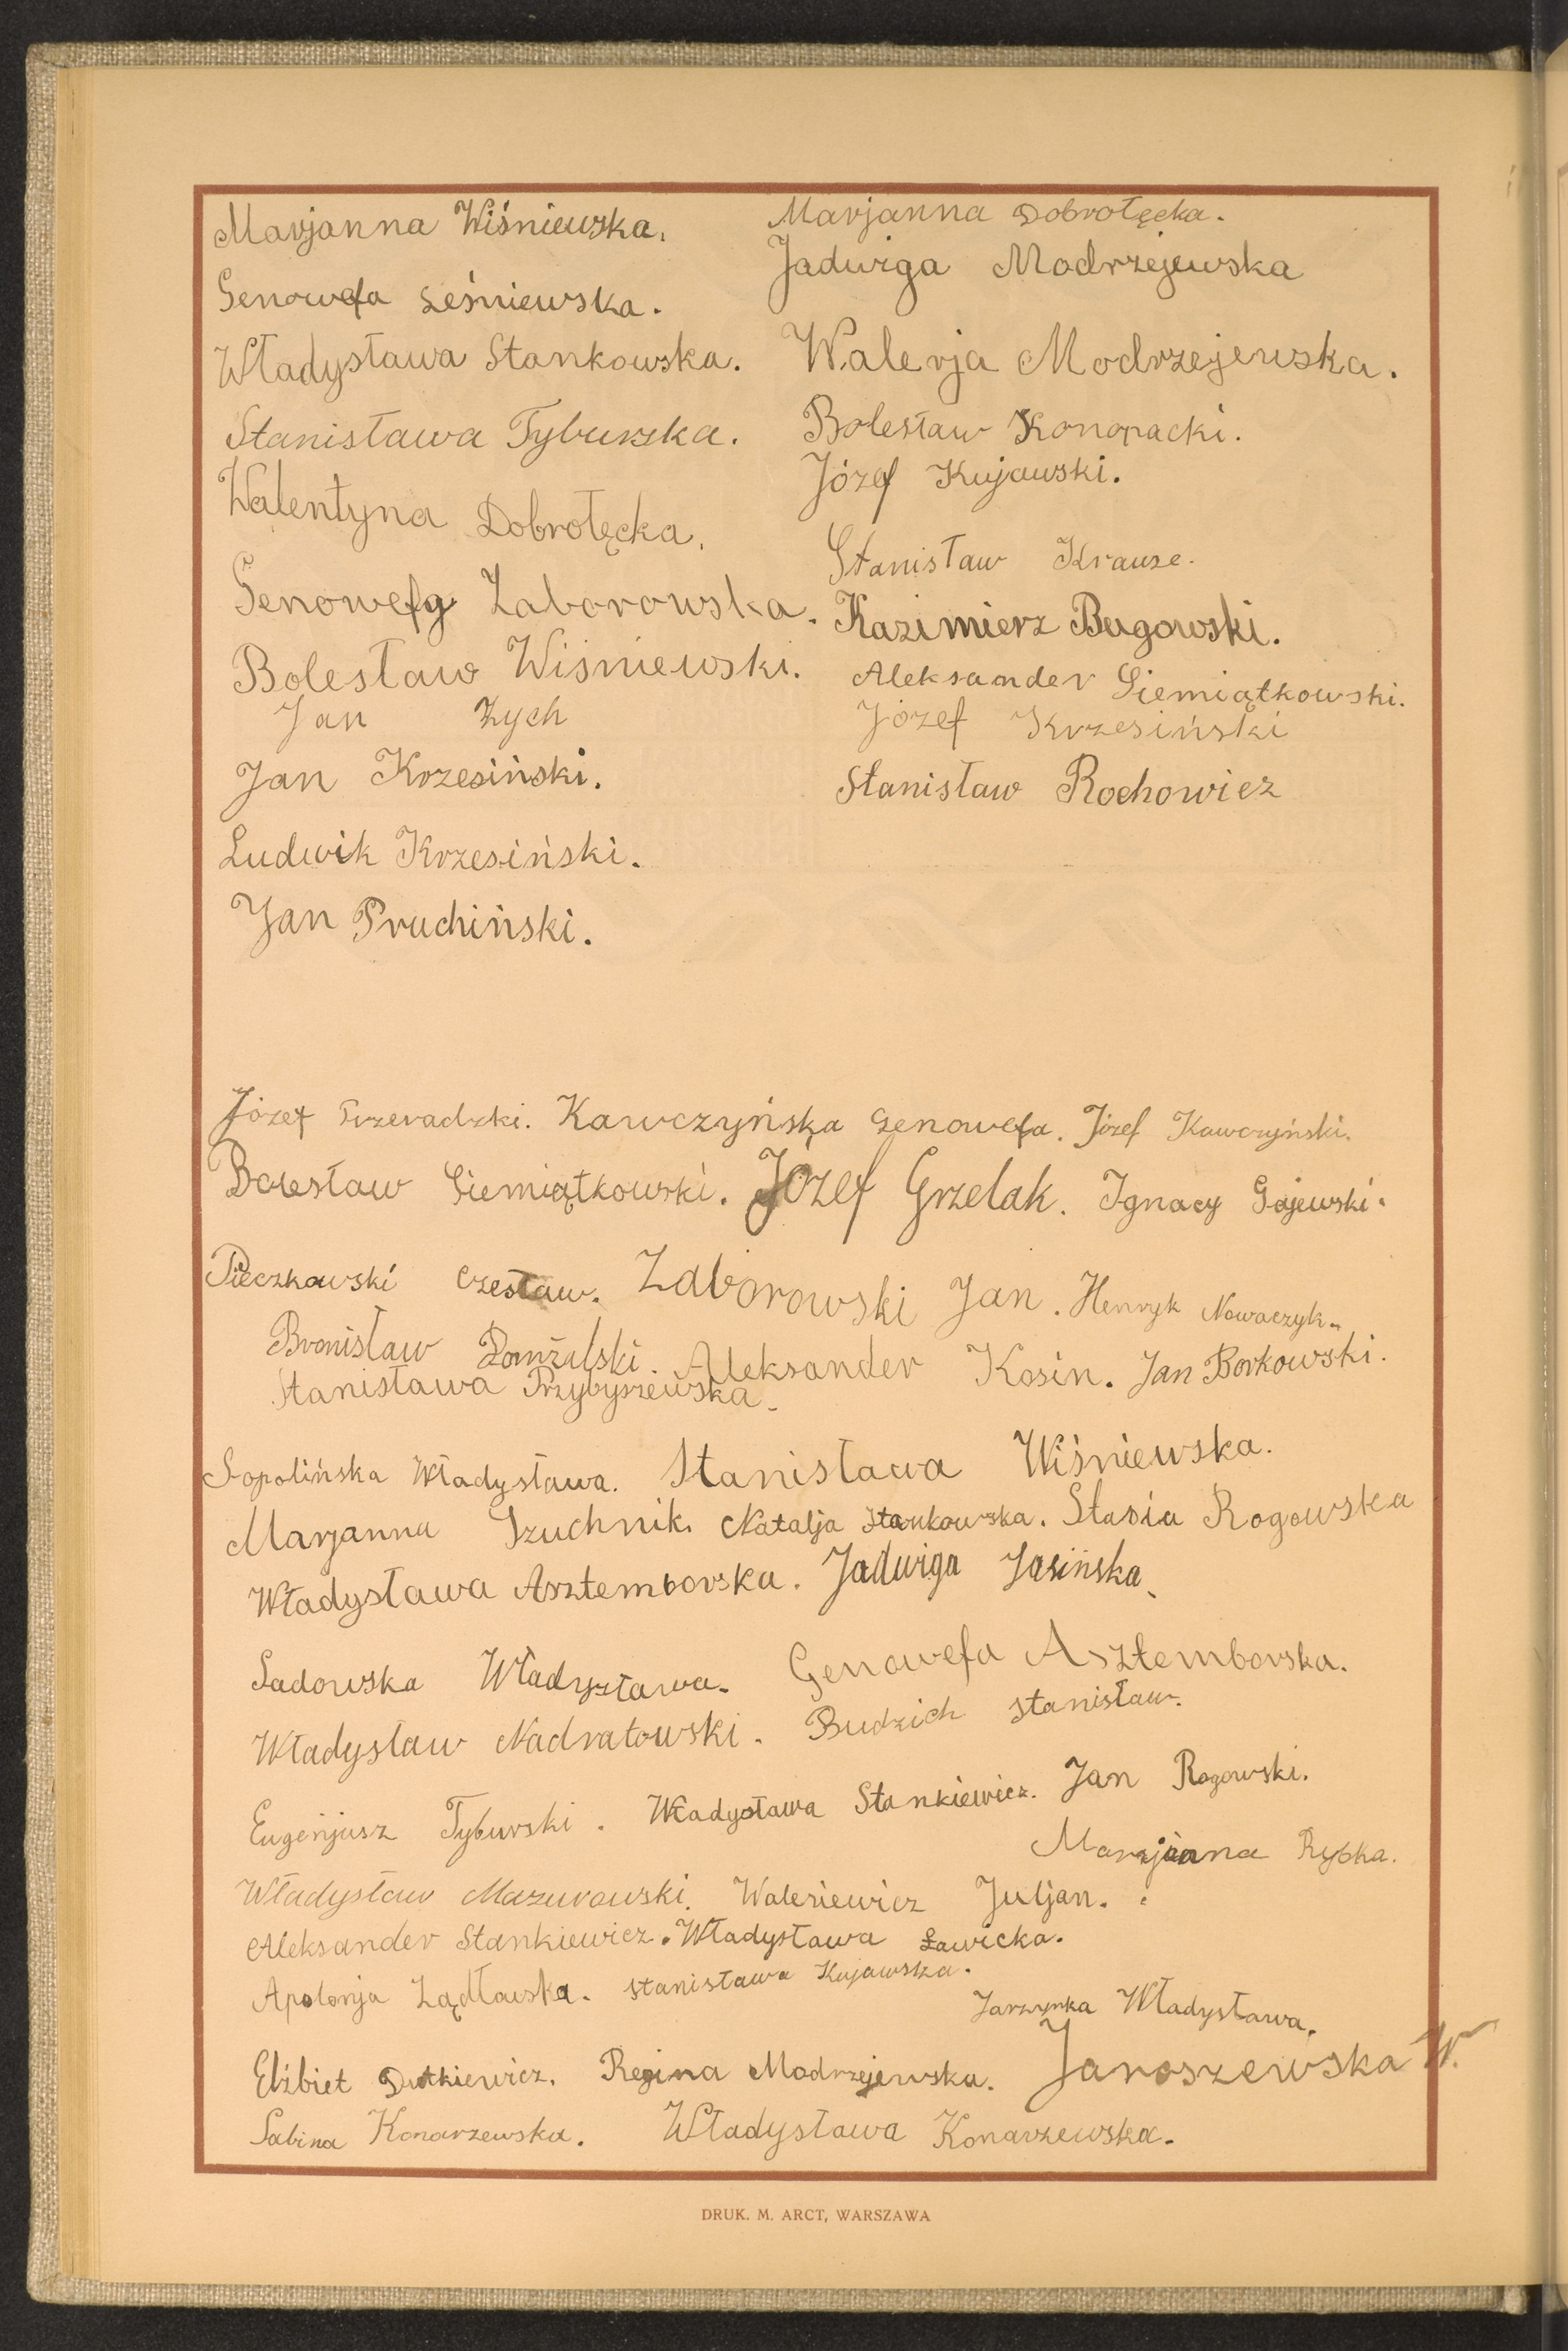 Marjanna Wiśniewska.
Genowefa Leśniewska.
Władysława Stankowska.
Stanisława Tyburska.
Walentyna Dobrołęcka.
Genowefa Zaborowska.
Bolesław Wiśniewski.
Jan Zych
Jan Krzesiński.
Ludwik Krzesiński.
Jan Pruchiński.
Marjanna Dobrołęcka.
Jadwiga Modrzejewska
Walerja Modrzejewska.
Bolesław Konopacki.
Józef Kujawski.
Stanisław Krauze.
Kazimierz Bugowski.
Aleksander Siemiątkowski.
Józef Krzesiński
Stanisław Rochowicz
Józef Przeradzki. Kawczyńska Genowefa. Józef Kawczyński.
Bolesław Siemiątkowski. Józef Grzelak. Ignacy Gajewski.
Pieczkowski Czesław. Zaborowski Jan. Henryk Nowaczyk.
Bronisław Domżalski. Aleksander Kosin. Jan Borkowski.
Stanisława Przybyszewska.
Sopolińska Władysława. Stanisława Wiśniewska.
Marjanna Szuchnik. Natalja Stankowska. Stasia Rogowska
Władysława Asztemborska. Jadwiga Jasińska.
Sadowska Władysława. Genowefa Asztemborska.
Władysław Nadratowski. Budzich Stanisław.
Eugenjusz Tyburski. Władysława Stankiewicz. Jan Rogowski.
Marjanna Rybka.
Władysław Mazurowski. Waleriewicz Juljan.
Aleksander Stankiewicz. Władysława Ławicka.
Apolonja Żądłowska. Stanisława Kujawska.
Jarzynka Władysława.
Elżbiet Dutkiewicz. Regina Modrzejewska. Jaroszewska W.
Sabina Konarzewska. Władysława Konarzewska.
DRUK. M. ARCT, WARSZAWA